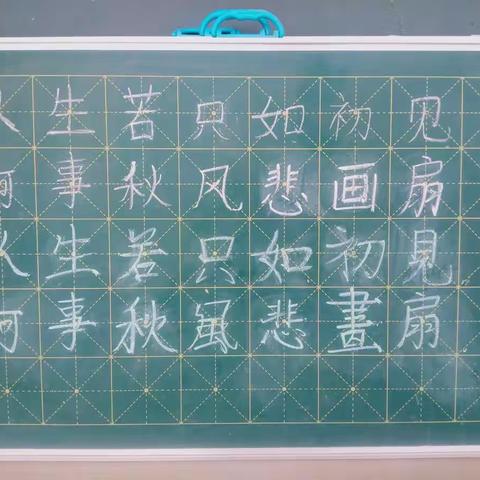 人生若只如初见
何事秋风悲画扇
人生若只如初見
何事秋風悲畫扇